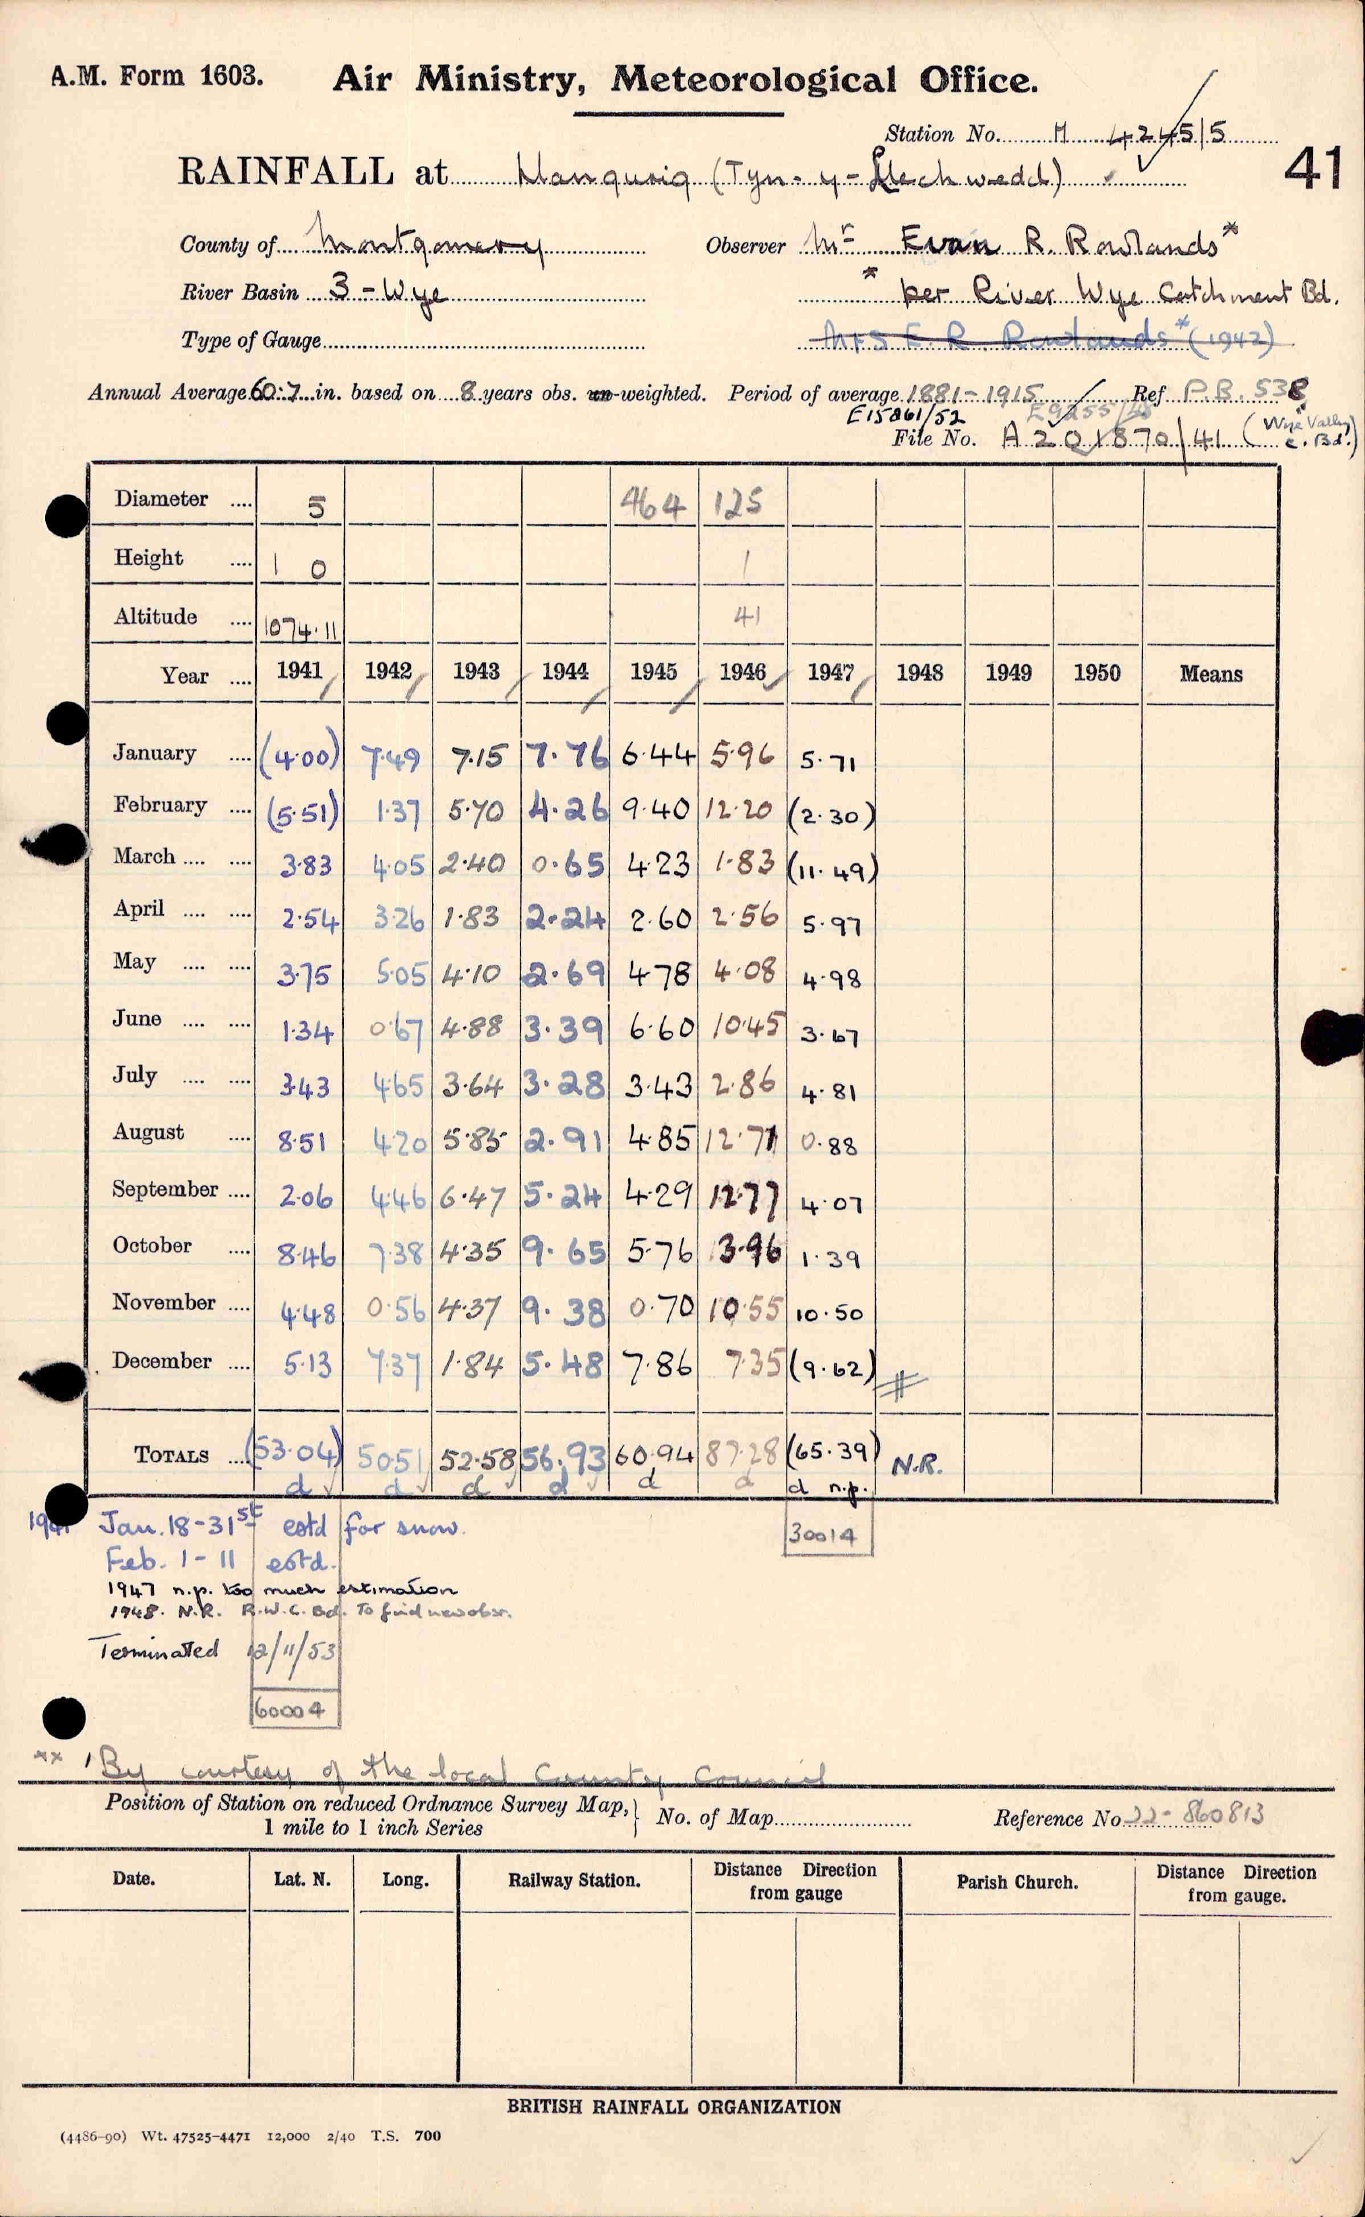 A.M. Form 1603. Air Ministry, Meteorological Office.
Station No. M 4245/5
41
RAINFALL at Llangurig (Tyn-y-Llechwedd)
County of Montgomery Observer Mr Evan R. Rowlands*
River Basin 3 - Wye * per River Wye Catchment Bd.
Type of Gauge Mrs E. R. Rowlands* (1942)
Annual Average 60.7 in. based on 8 years obs. un-weighted. Period of average 1881-1915 Ref P.B. 538
E15861/52 E9255/48
File No. A 201870/41 (Wye Valley C. Bd.)
Diameter .... 5 464 125
Height .... 1 0 1
Altitude .... 1074.11 41
Year .... 1941 1942 1943 1944 1945 1946 1947 1948 1949 1950 Means
January .... (4.00) 7.49 7.15 7.76 6.44 5.96 5.71
February .... (5.51) 1.37 5.70 4.26 9.40 12.20 (2.30)
March .... .... 3.83 4.05 2.40 0.65 4.23 1.83 (11.49)
April .... .... 2.54 3.26 1.83 2.24 2.60 2.56 5.97
May .... .... 3.75 5.05 4.10 2.69 4.78 4.08 4.98
June .... .... 1.34 0.67 4.88 3.39 6.60 10.45 3.67
July .... .... 3.43 4.65 3.64 3.28 3.43 2.86 4.81
August .... 8.51 4.20 5.85 2.91 4.85 12.71 0.88
September .... 2.06 4.46 6.47 5.24 4.29 12.77 4.07
October .... 8.46 7.38 4.35 9.65 5.76 3.96 1.39
November .... 4.48 0.56 4.37 9.38 0.70 10.55 10.50
December .... 5.13 7.37 1.84 5.48 7.86 7.35 (9.62)
TOTALS .... (53.04) 50.51 52.58 56.93 60.94 87.28 (65.39) N.R.
d d d d d d d n.p.
1941 Jan. 18-31st estd for snow. 30014
Feb. 1-11 estd.
1947 n.p. too much estimation
1948. N.R. R.W.C. Bd. To find new obsr.
Terminated 12/11/53
60004
** By courtesy of the local County Council
Position of Station on reduced Ordnance Survey Map, 1 mile to 1 inch Series } No. of Map Reference No 22-860813
Date. Lat. N. Long. Railway Station. Distance Direction from gauge Parish Church. Distance Direction from gauge.
BRITISH RAINFALL ORGANIZATION
(4486-90) Wt. 47525-4471 12,000 2/40 T.S. 700